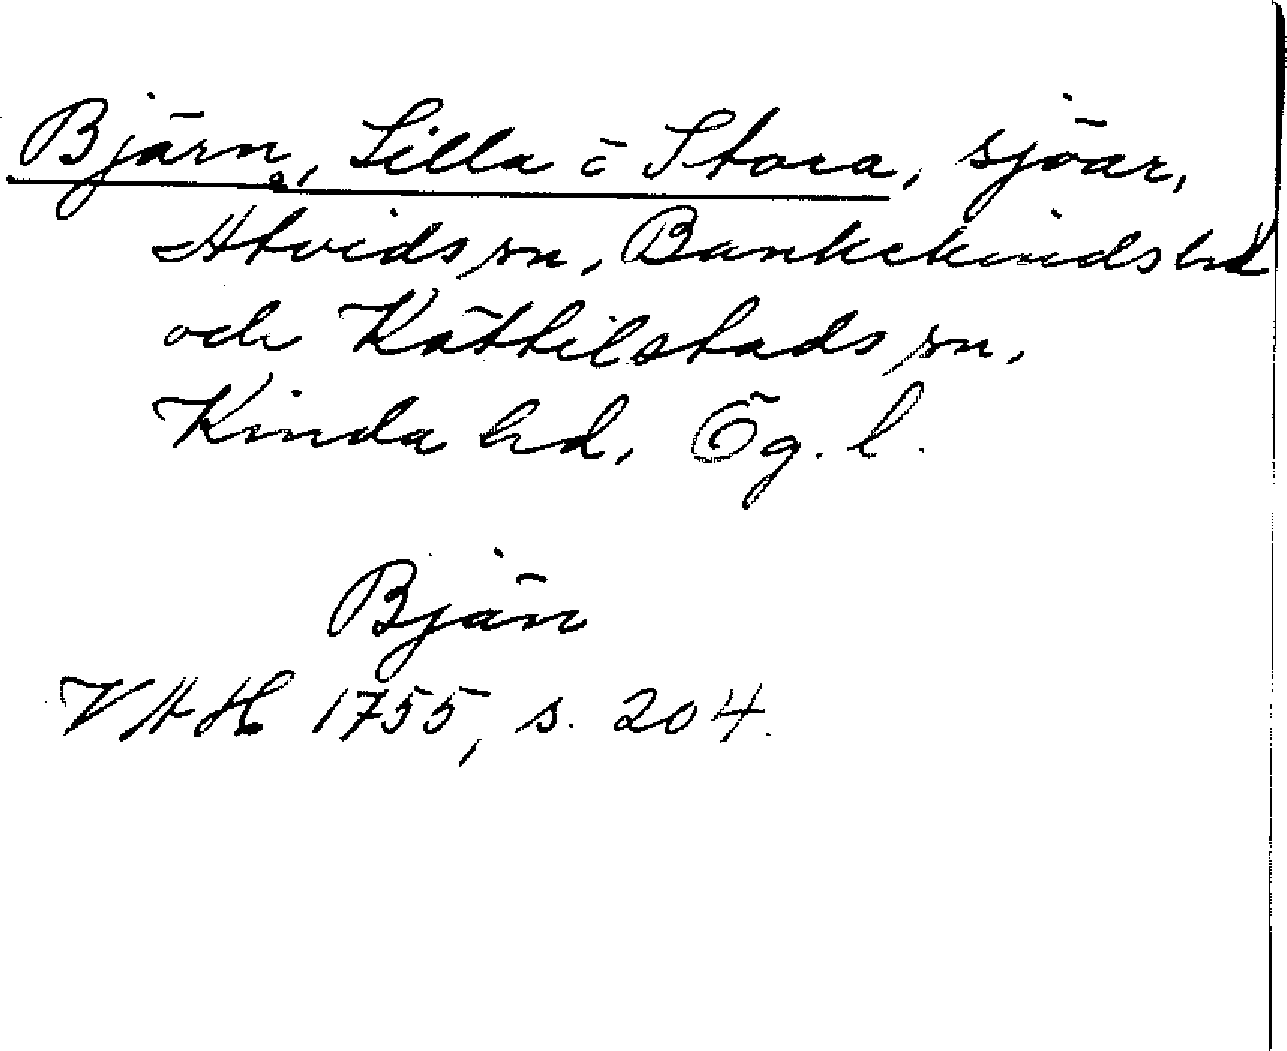 Bjärn, Lilla o Stora, sjöar,
Åtvids sn, Bankekinds hd
och Kättilstads sn,
Kinda hd, Ög. l.
Bjän
VAH 1755, s. 204.